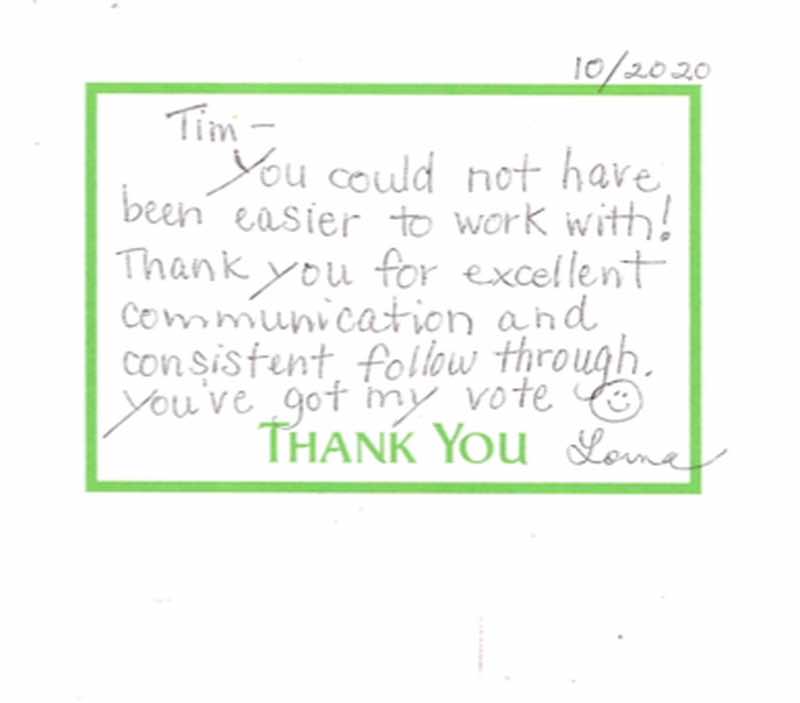 10/2020
Tim –
You could not have
been easier to work with!
Thank you for excellent
communication and
consistent follow through.
You've got my vote
THANK YOU
Lorna